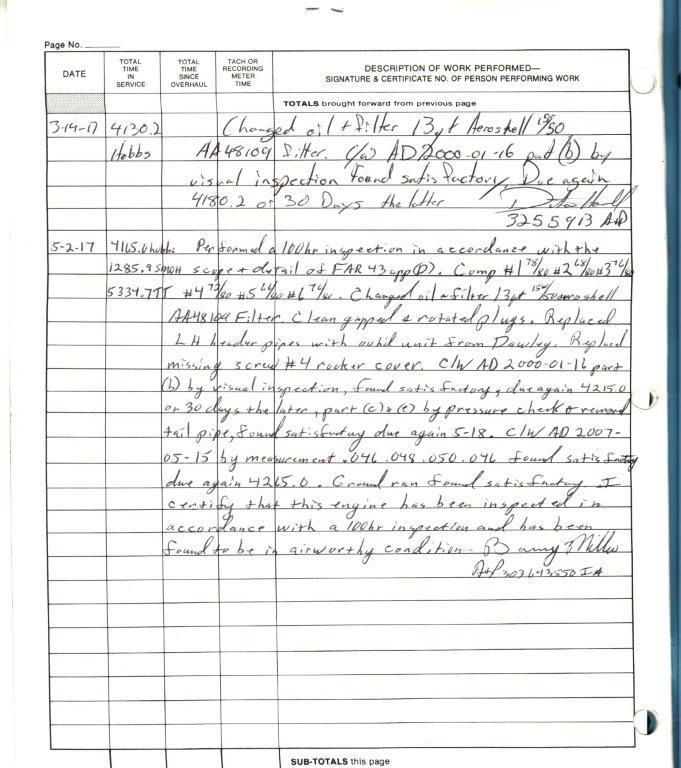 Page No.
DATE
TOTAL TIME IN SERVICE
TOTAL TIME SINCE OVERHAUL
TACH OR RECORDING METER TIME
DESCRIPTION OF WORK PERFORMED—
SIGNATURE & CERTIFICATE NO. OF PERSON PERFORMING WORK
TOTALS brought forward from previous page
3-14-17 4130.2 Changed oil + filter 13qt Aeroshell 15/50
Hobbs AA48109 filter. C/W AD 2000-01-16 part (b) by
visual inspection found satisfactory Due again
4180.2 or 30 Days the latter
3255913 A&P
5-2-17 4165.0 hobbs Performed a 100hr inspection in accordance with the
1285.9 SMOH scope + detail of FAR 43 app(D). Comp #1 78/80 #2 68/80 #3 76/80
5334.7 TT #4 72/80 #5 66/80 #6 76/80. Changed oil + filter 13qt 15w/50 aeroshell
AA48109 Filter. Clean gapped & rotated plugs. Replaced
LH header pipes with ovhd unit from Dawley. Replaced
missing screw #4 rocker cover. C/W AD 2000-01-16 part
(b) by visual inspection, found satisfactory, due again 4215.0
or 30 days the later, part (c) & (e) by pressure check & remove
tail pipe, found satisfactory due again 5-18. C/W AD 2007-
05-15 by measurement .046 .048 .050 .046 found satisfactory
due again 4265.0. Ground ran found satisfactory I
certify that this engine has been inspected in
accordance with a 100hr inspection and has been
found to be in airworthy condition. Barry Miller
A&P 303643550 IA
SUB-TOTALS this page